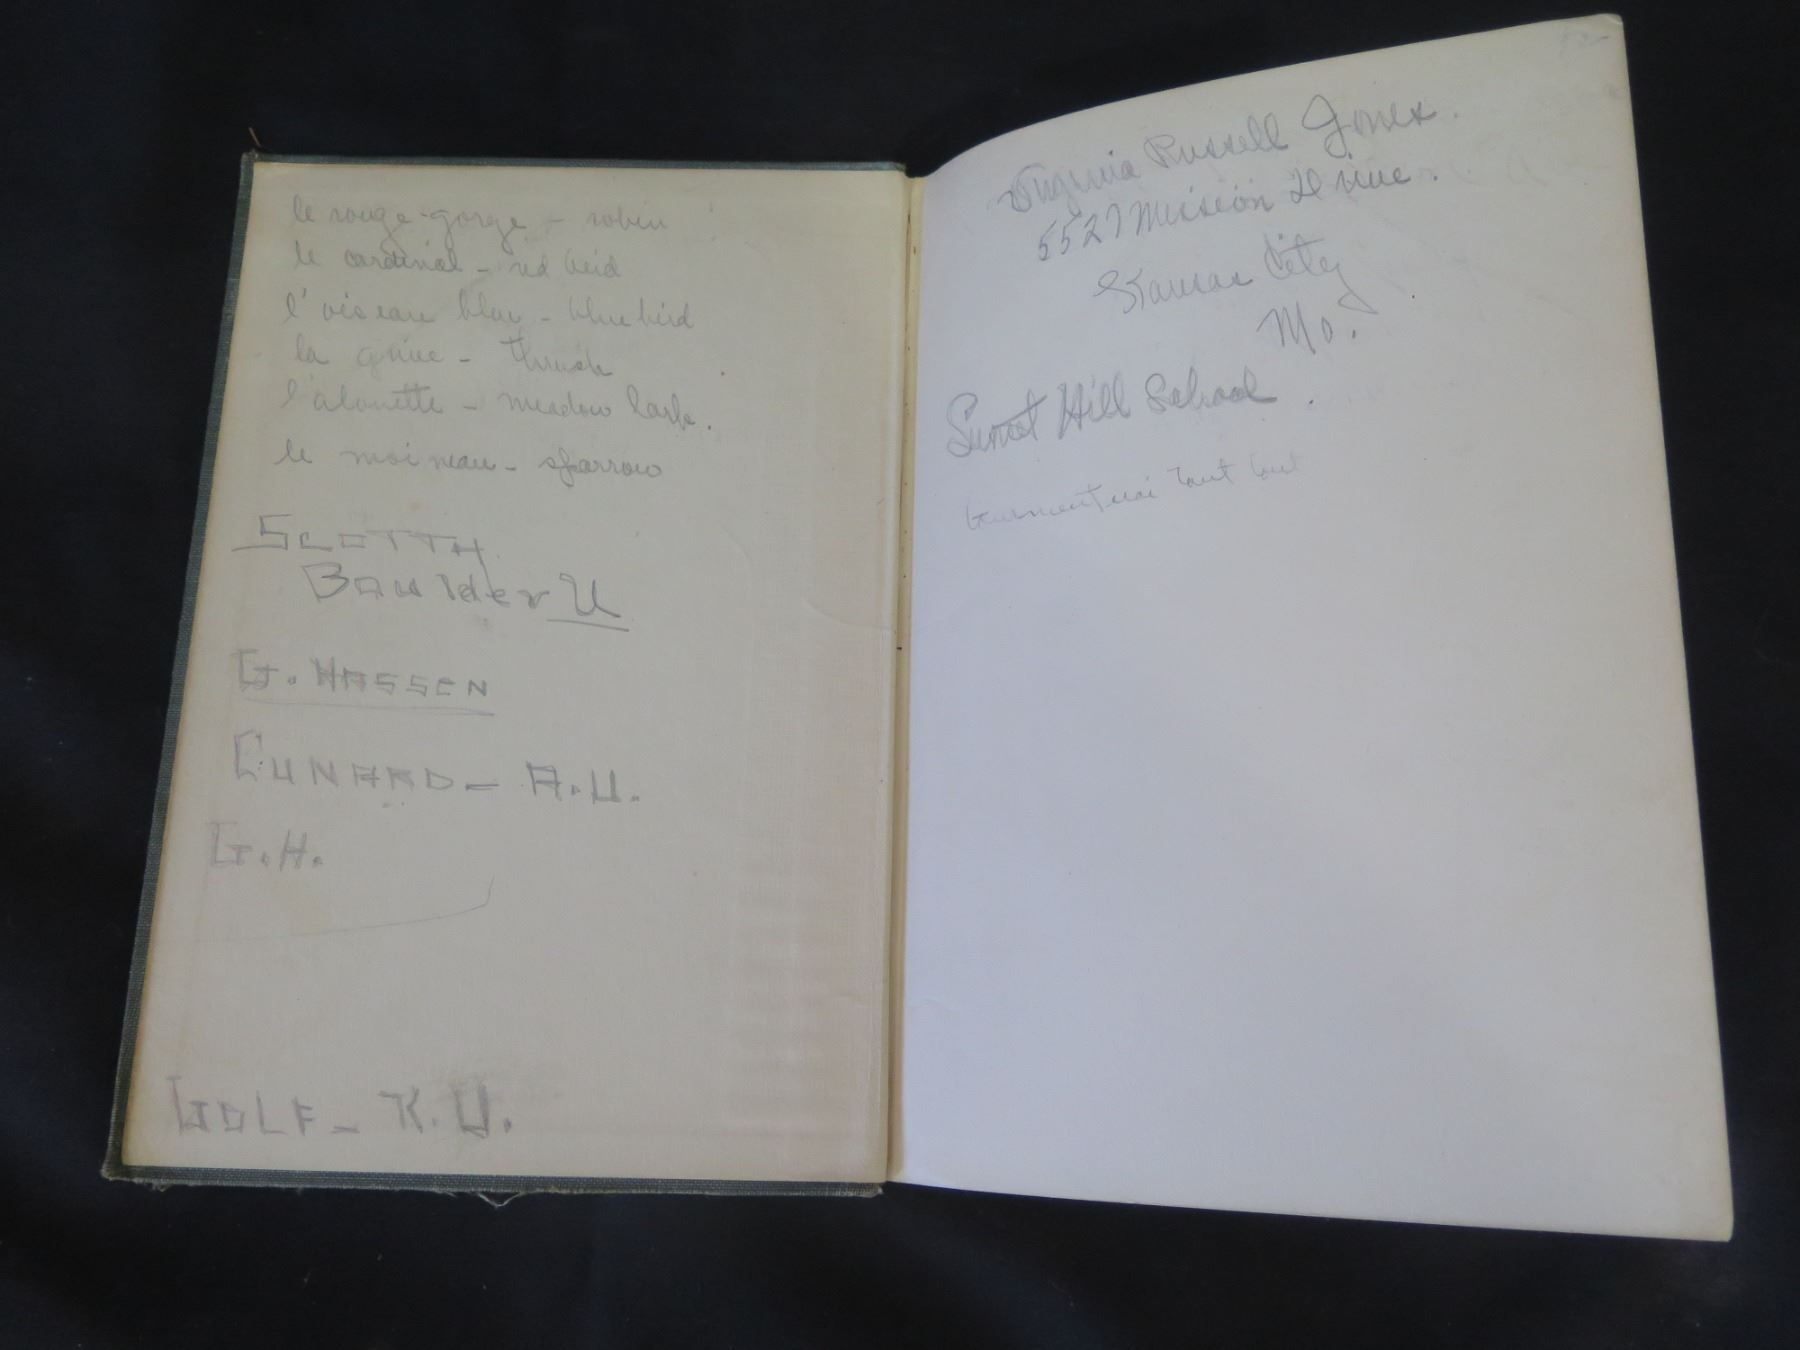 le rouge-gorge - robin
le cardinal - red bird
l'oiseau bleu - blue bird
la grive - thrush
l'alouette - meadow lark.
le moineau - sparrow
SCOTTY
Boulder U
G. HASSEN
CUNARD - A.U.
G.H.
GOLF - K.U.
Virginia Russell Jones.
5527 Mission Drive.
Kansas City
Mo.
Sunset Hill School.
tout